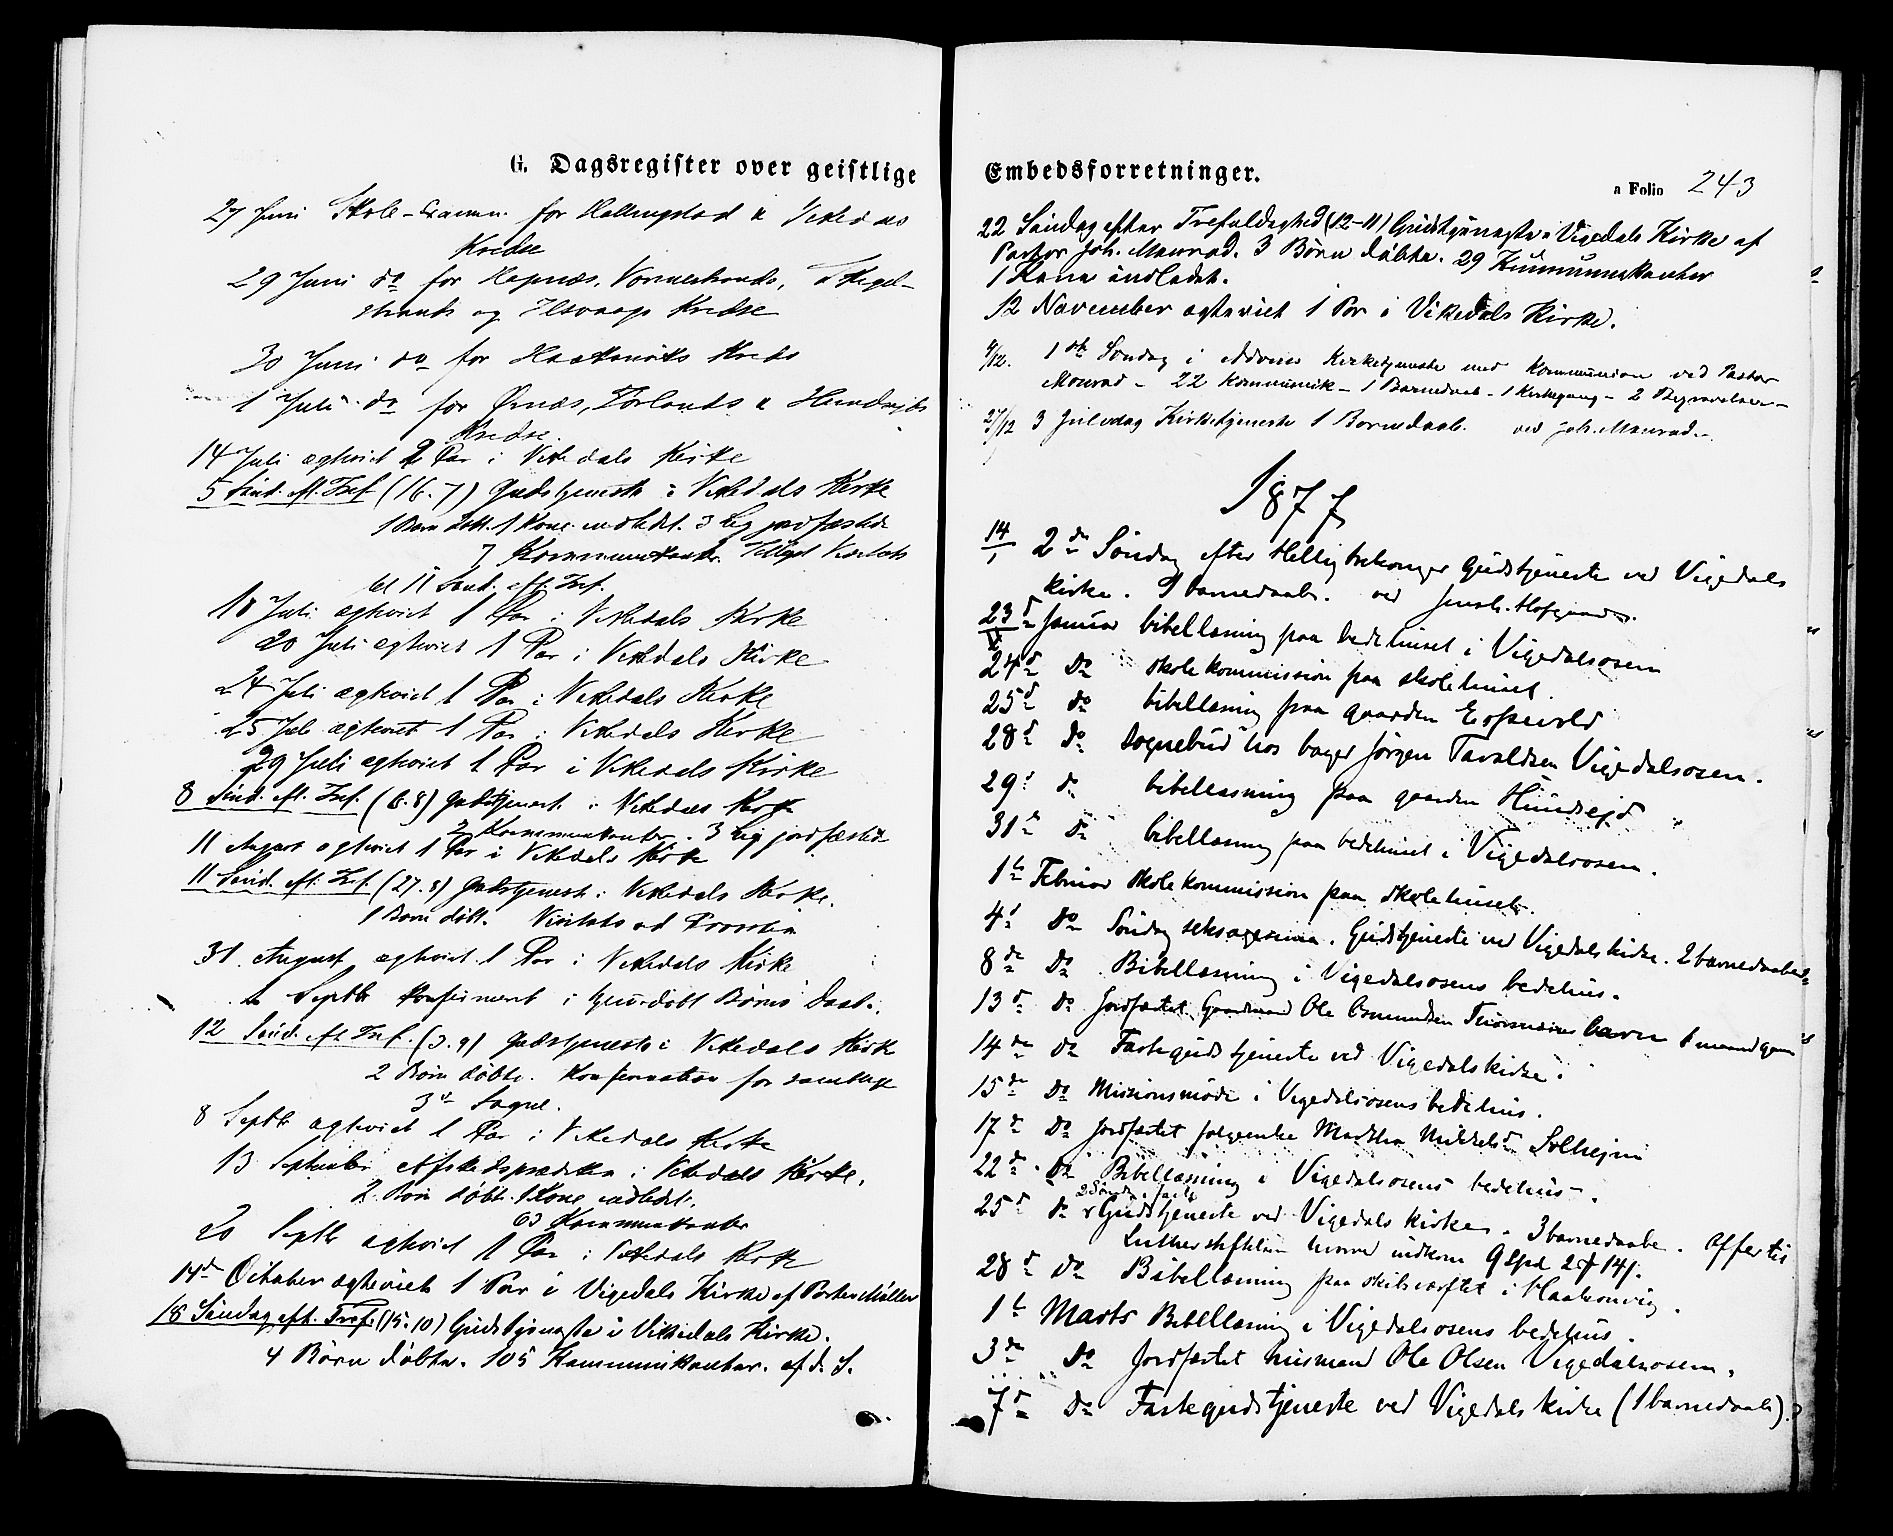 G. Dagsregister over geistlige
27 Juni Skole-Examn. for Hallingstad & Vikedals
Kredse
29 Juni do for Hapnæs, Vormestrands,
strands og Ilsvaags Kredse
30 Juni do for Kreds
1 Juli do for Ørnæs, & Hundsejds
Kredse
14 Juli ægteviet 2 Par i Vikedals Kirke
5 Sønd. eft. Tref (16.7) Gudstjeneste i Vikedals Kirke
1 Barn døbt. 1 Kone indledet. 3 Lig jordfæstede
7 Kommunikanter.
til 11 Sønd. eft. Tref.
18 Juli ægteviet 1 Par i Vikedals Kirke
20 Juli ægteviet 1 Par i Vikedals Kirke
24 Juli ægteviet 1 Par i Vikedals Kirke
25 Juli ægteviet 1 Par i Vikedals Kirke
29 Juli ægteviet 1 Par i Vikedals Kirke
8 Sønd. eft. Tref. (6.8) Gudstjenest. i Vikedals Kirke
7 Kommunikanter. 3 Lig jordfæstede
11 August ægteviet 1 Par i Vikedals Kirke
11 Sønd. eft. Tref. (27.8) Gudstjenest. i Vikedals Kirke.
1 Barn døbt. Visitats ved Provsten
31. August ægteviet 1 Par i Vikedals Kirke
Septbr konfirmeret i Børns Daab.
12 Sønd. eft Tref. (3.9) Gudstjeneste i Vikedals Kirke
2 Børn døbte. Konfirmation for samtlige
3de Sogne.
8 Septbr ægteviet 1 Par i Vikedals Kirke
13 September Afskedsprædiken i Vikedals Kirke.
2 Børn døbt. 1 Kone indledet.
63 Kommunikanter
20 Septbr ægteviet 1 Par i Vikedals Kirke
14de October ægteviet 1 Par i Vigedals Kirke af Møller
18 Søndag eft. Tref. (15.10) Gudstjeneste i Vikedals Kirke.
4 Børn døbte. 105 Kommunikanter. af d. S.
Embedsforretninger.
a Folio 243
22 Søndag efter Trefoldighed (12-11) Gudstjeneste i Vigedals Kirke af
Pastor Joh. Monrad. 3 Børn døbte. 29 Kummunikanter
1 Kone indledet.
12 November ægteviet 1 Par i Vikedals Kirke.
1ste Søndag i Advent Kirketjeneste med Kommunion ved Pastor
Monrad - 22 Kommunik - 1 Barnedaab - 1 Kirkegang - 2 Begravelser -
27/12 3 Juledag Kirketjeneste 1 Barnedaab. ved Joh. Monrad.
1877
14/1 2den Søndag efter Helligtrekonger Gudstjeneste ved Vigedals
kirke. barnedaab. ved
23d Januar bibellæsning paa bedehuset i Vigedalsosen
24d Do skolekommission paa skolehuset.
25d do bibellæsning paa gaarden
28d Do Sognebud hos bager Jørgen Vigedalsosen.
29d do bibellæsning paa gaarden Hundsejd
31d do bibellæsning paa bedehuset i Vigedalsosen.
1ste Februar skolekommission paa skolehuset.
4d Do Søndag seksagesima. Gudstjeneste ved Vigedals kirke. 2 barnedaabe
8de Do Bibellæsning i Vigedalsosens bedehus.
13d Do Jordfæstet Gaardmand Ole Osmundsen barn 1 maand gam
14de Do Fastegudstjeneste ved Vigedalskirke.
15de Do Missionsmøde i Vigedalsosens bedehus.
17de Do Jordfæstet Martha Solhejm
22de Do Bibellæsning i Vigedalsosens bedehus.
25d Do 2 Sønd. i faste Gudstjeneste ved Vigedals kirke. 3 barnedaabe. Offer til
Lutherstiftelsen hvorved indkom 9 Spd 2 14
28d Do Bibellæsning paa skibsværftet i Haakonvig.
1ste Marts Bibellæsning i Vigedalsosens bedehus.
3de Do Jordfæstet husmand Ole Olsen Vigedalsosen.
7de Do Fastegudstjeneste ved Vigedals kirke (1 barnedaab)